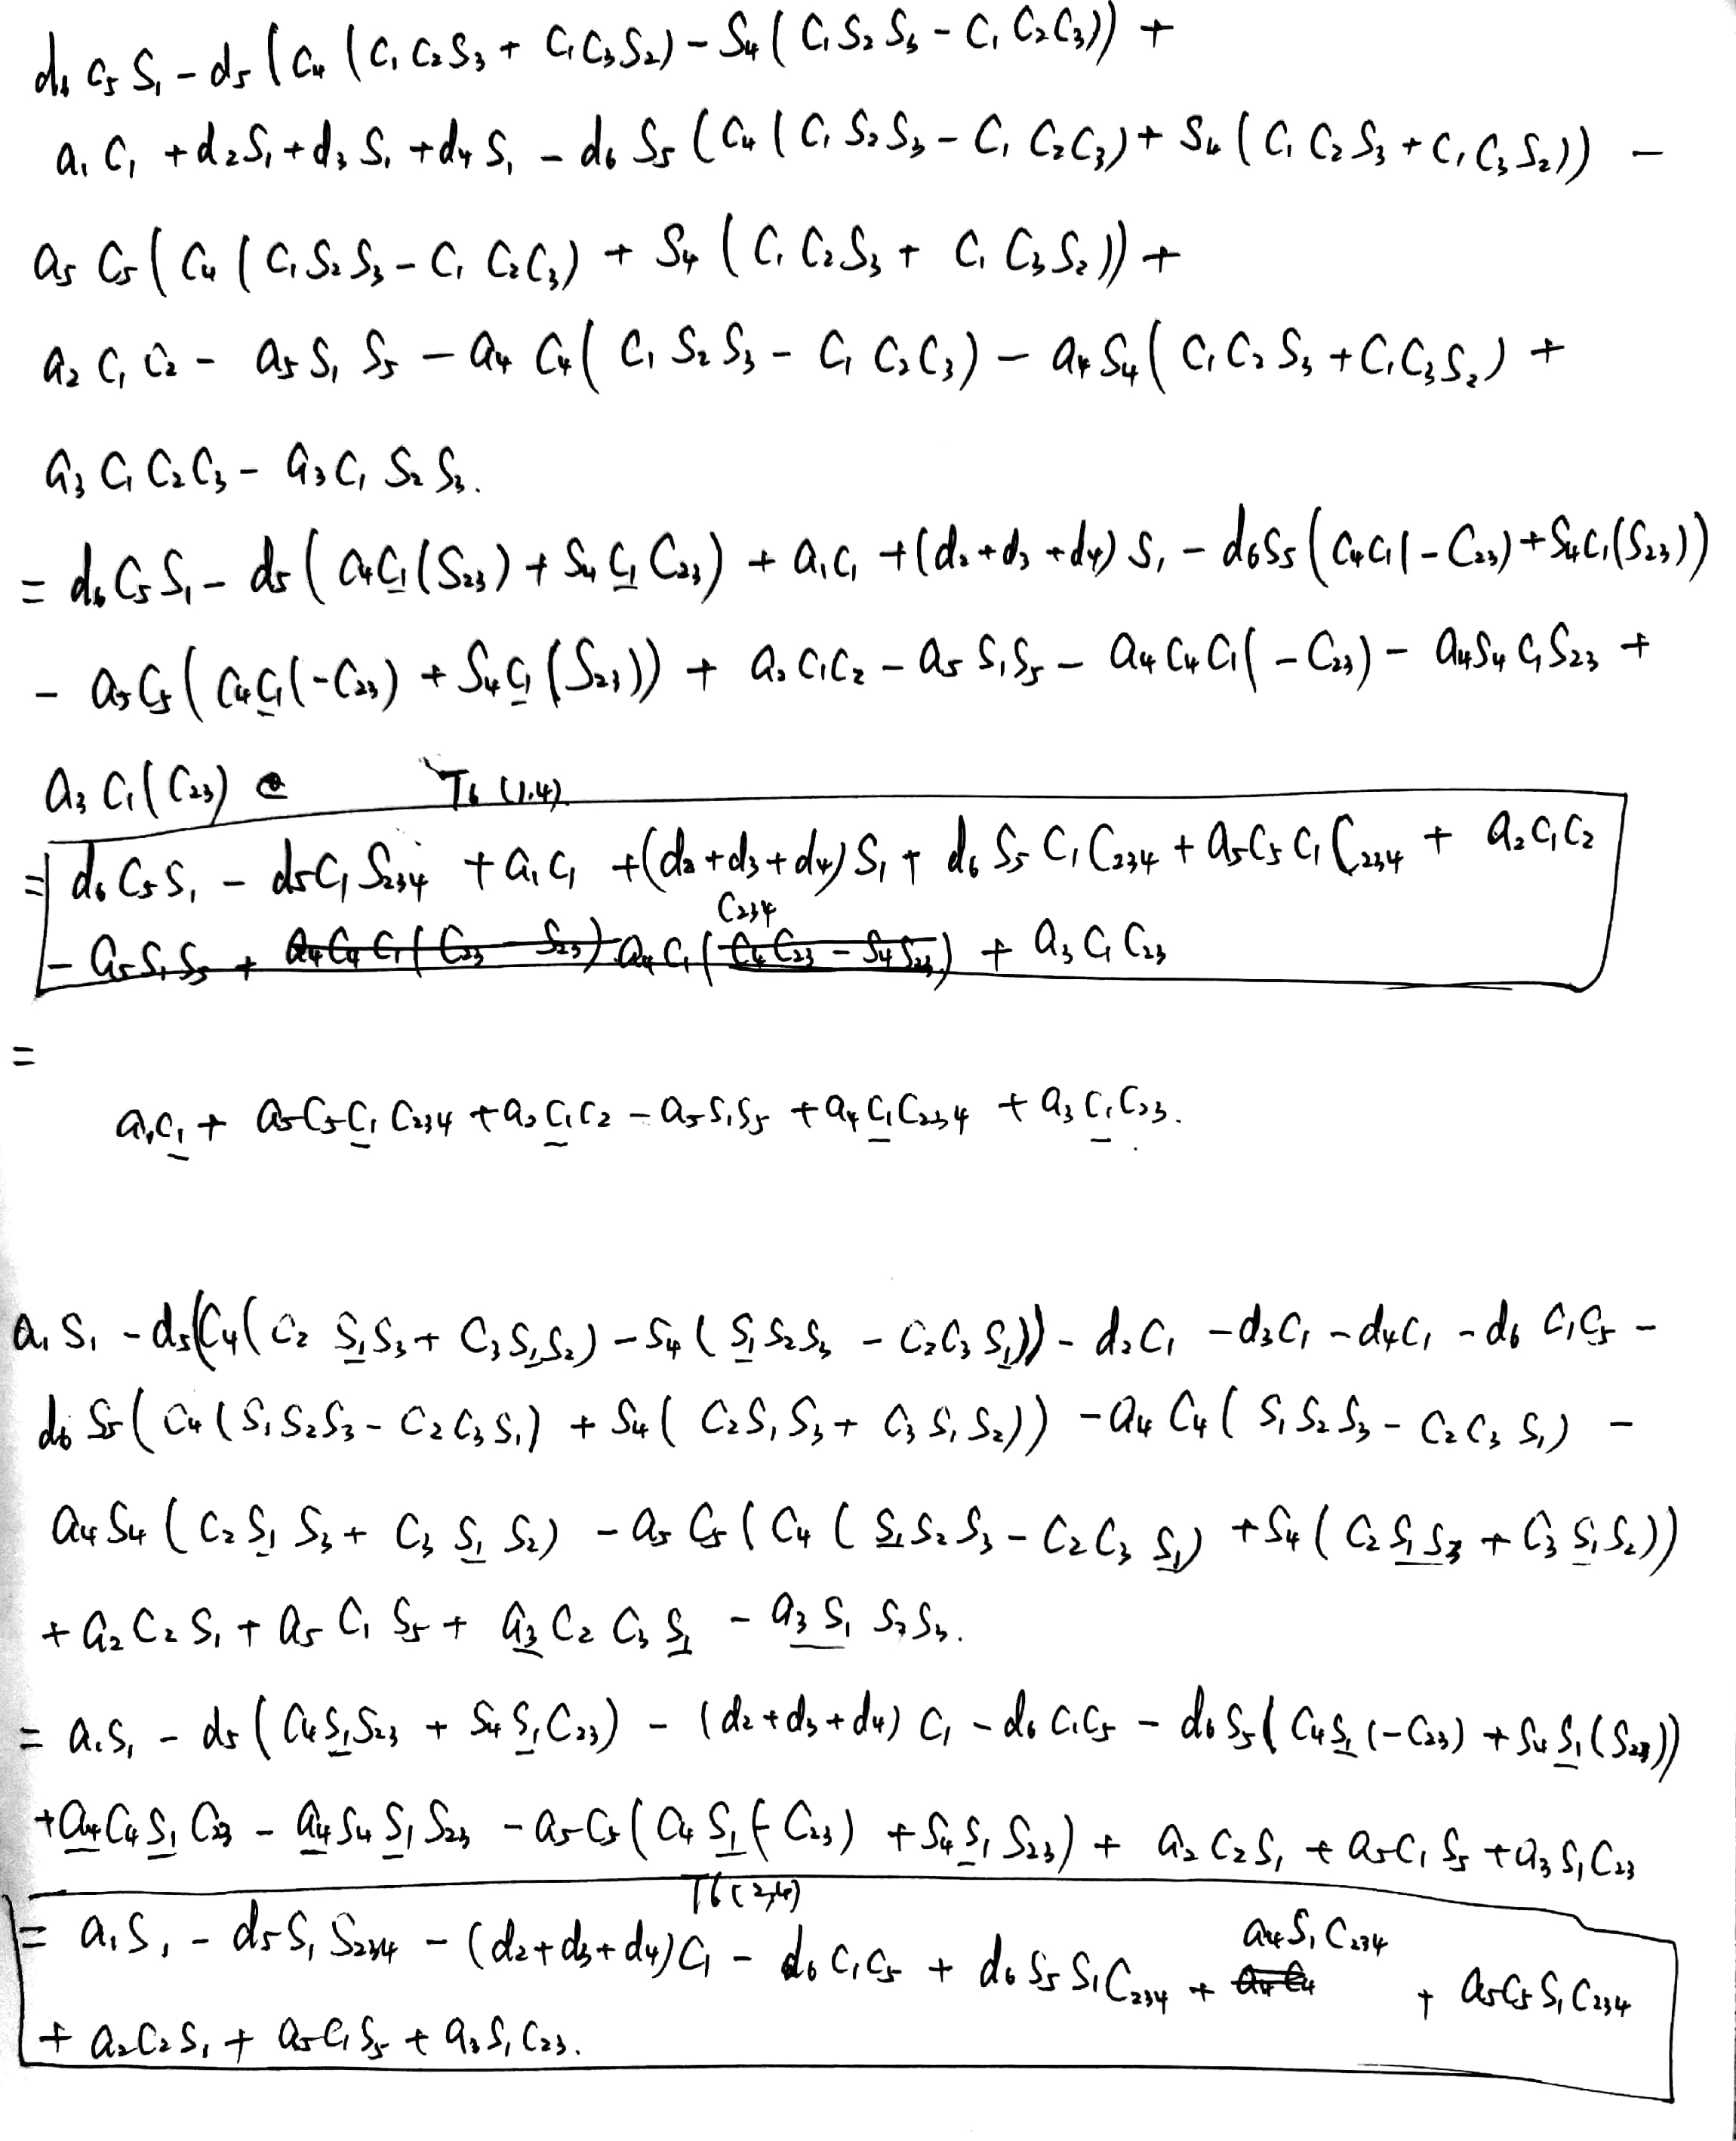 d₆ C₅ S₁ - d₅ (C₄ (C₁ C₂ S₃ + C₁ C₃ S₂) - S₄ ( C₁ S₂ S₃ - C₁ C₂ C₃)) +
a₁ C₁ + d₂ S₁ + d₃ S₁ + d₄ S₁ - d₆ S₅ (C₄ ( C₁ S₂ S₃ - C₁ C₂ C₃) + S₄ ( C₁ C₂ S₃ + C₁ C₃ S₂)) -
a₅ C₅ ( C₄ ( C₁ S₂ S₃ - C₁ C₂ C₃) + S₄ ( C₁ C₂ S₃ + C₁ C₃ S₂)) +
a₂ C₁ C₂ - a₅ S₁ S₅ - a₄ C₄ ( C₁ S₂ S₃ - C₁ C₂ C₃) - a₄ S₄ ( C₁ C₂ S₃ + C₁ C₃ S₂) +
a₃ C₁ C₂ C₃ - a₃ C₁ S₂ S₃.
= d₆ C₅ S₁ - d₅ ( C₄ C₁ (S₂₃) + S₄ C₁ C₂₃) + a₁ C₁ + (d₂ + d₃ + d₄) S₁ - d₆ S₅ ( C₄ C₁ ( - C₂₃) + S₄ C₁ (S₂₃))
- a₅ C₅ ( C₄ C₁ (- C₂₃) + S₄ C₁ (S₂₃)) + a₂ C₁ C₂ - a₅ S₁ S₅ - a₄ C₄ C₁ ( - C₂₃) - a₄ S₄ C₁ S₂₃ +
a₃ C₁ ( C₂₃) T₆ (1,4)
= d₆ C₅ S₁ - d₅ C₁ S₂₃₄ + a₁ C₁ + (d₂ + d₃ + d₄) S₁ + d₆ S₅ C₁ C₂₃₄ + a₅ C₅ C₁ C₂₃₄ + a₂ C₁ C₂
C₂₃₄
- a₅ S₁ S₅ + a₄ C₄ C₁ ( C₂₃ - S₂₃) a₄ C₁ ( C₄ C₂₃ - S₄ S₂₃) + a₃ C₁ C₂₃
=
a₁ C₁ + a₅ C₅ C₁ C₂₃₄ + a₂ C₁ C₂ - a₅ S₁ S₅ + a₄ C₁ C₂₃₄ + a₃ C₁ C₂₃.
a₁ S₁ - d₅ (C₄ ( C₂ S₁ S₃ + C₃ S₁ S₂) - S₄ ( S₁ S₂ S₃ - C₂ C₃ S₁)) - d₂ C₁ - d₃ C₁ - d₄ C₁ - d₆ C₁ C₅ -
d₆ S₅ ( C₄ ( S₁ S₂ S₃ - C₂ C₃ S₁) + S₄ ( C₂ S₁ S₃ + C₃ S₁ S₂)) - a₄ C₄ ( S₁ S₂ S₃ - C₂ C₃ S₁) -
a₄ S₄ ( C₂ S₁ S₃ + C₃ S₁ S₂) - a₅ C₅ ( C₄ ( S₁ S₂ S₃ - C₂ C₃ S₁) + S₄ ( C₂ S₁ S₃ + C₃ S₁ S₂))
+ a₂ C₂ S₁ + a₅ C₁ S₅ + a₃ C₂ C₃ S₁ - a₃ S₁ S₂ S₃.
= a₁ S₁ - d₅ ( C₄ S₁ S₂₃ + S₄ S₁ C₂₃) - (d₂ + d₃ + d₄) C₁ - d₆ C₁ C₅ - d₆ S₅ ( C₄ S₁ (- C₂₃) + S₄ S₁ (S₂₃))
+ a₄ C₄ S₁ C₂₃ - a₄ S₄ S₁ S₂₃ - a₅ C₅ ( C₄ S₁ (- C₂₃) + S₄ S₁ S₂₃) + a₂ C₂ S₁ + a₅ C₁ S₅ + a₃ S₁ C₂₃
T₆ (2,4)
= a₁ S₁ - d₅ S₁ S₂₃₄ - (d₂ + d₃ + d₄) C₁ - d₆ C₁ C₅ + d₆ S₅ S₁ C₂₃₄ + a₄ C₄ a₄ S₁ C₂₃₄ + a₅ C₅ S₁ C₂₃₄
+ a₂ C₂ S₁ + a₅ C₁ S₅ + a₃ S₁ C₂₃.